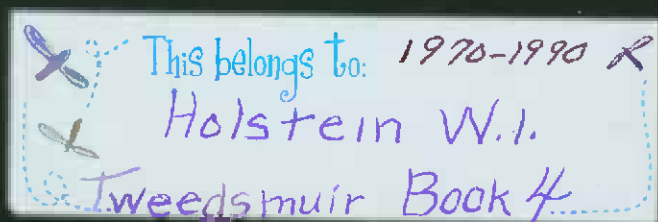 This belongs to: 1970-1990
Holstein W.I.
Tweedsmuir Book 4